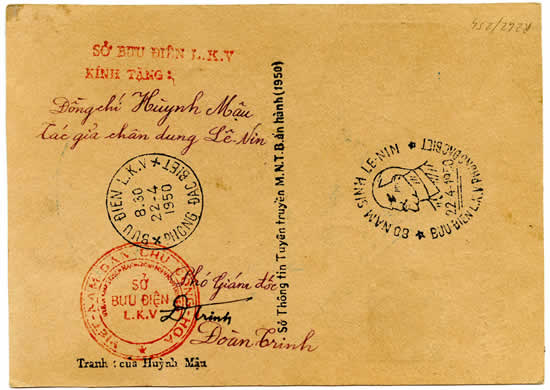 SỞ BƯU ĐIỆN L.K.V
KÍNH TẶNG :
Đồng chí Huỳnh Mậu
tác giả chân dung Lê-Nin
BƯU ĐIỆN L.K.V
8.30
22-4
1950
PHÒNG ĐẶC BIỆT
VIỆT-NAM DÂN CHỦ CỘNG-HÒA
SỞ
BƯU ĐIỆN
L.K.V
Phó Giám đốc
Đoàn Trinh
Tranh : của Huỳnh Mậu
Sở Thông tin Tuyên truyền M.N.T.B. ấn hành (1950)
80 NĂM SINH LE-NIN
22-4-1950
BƯU ĐIỆN L.K.V PHÒNG ĐẶC BIỆT